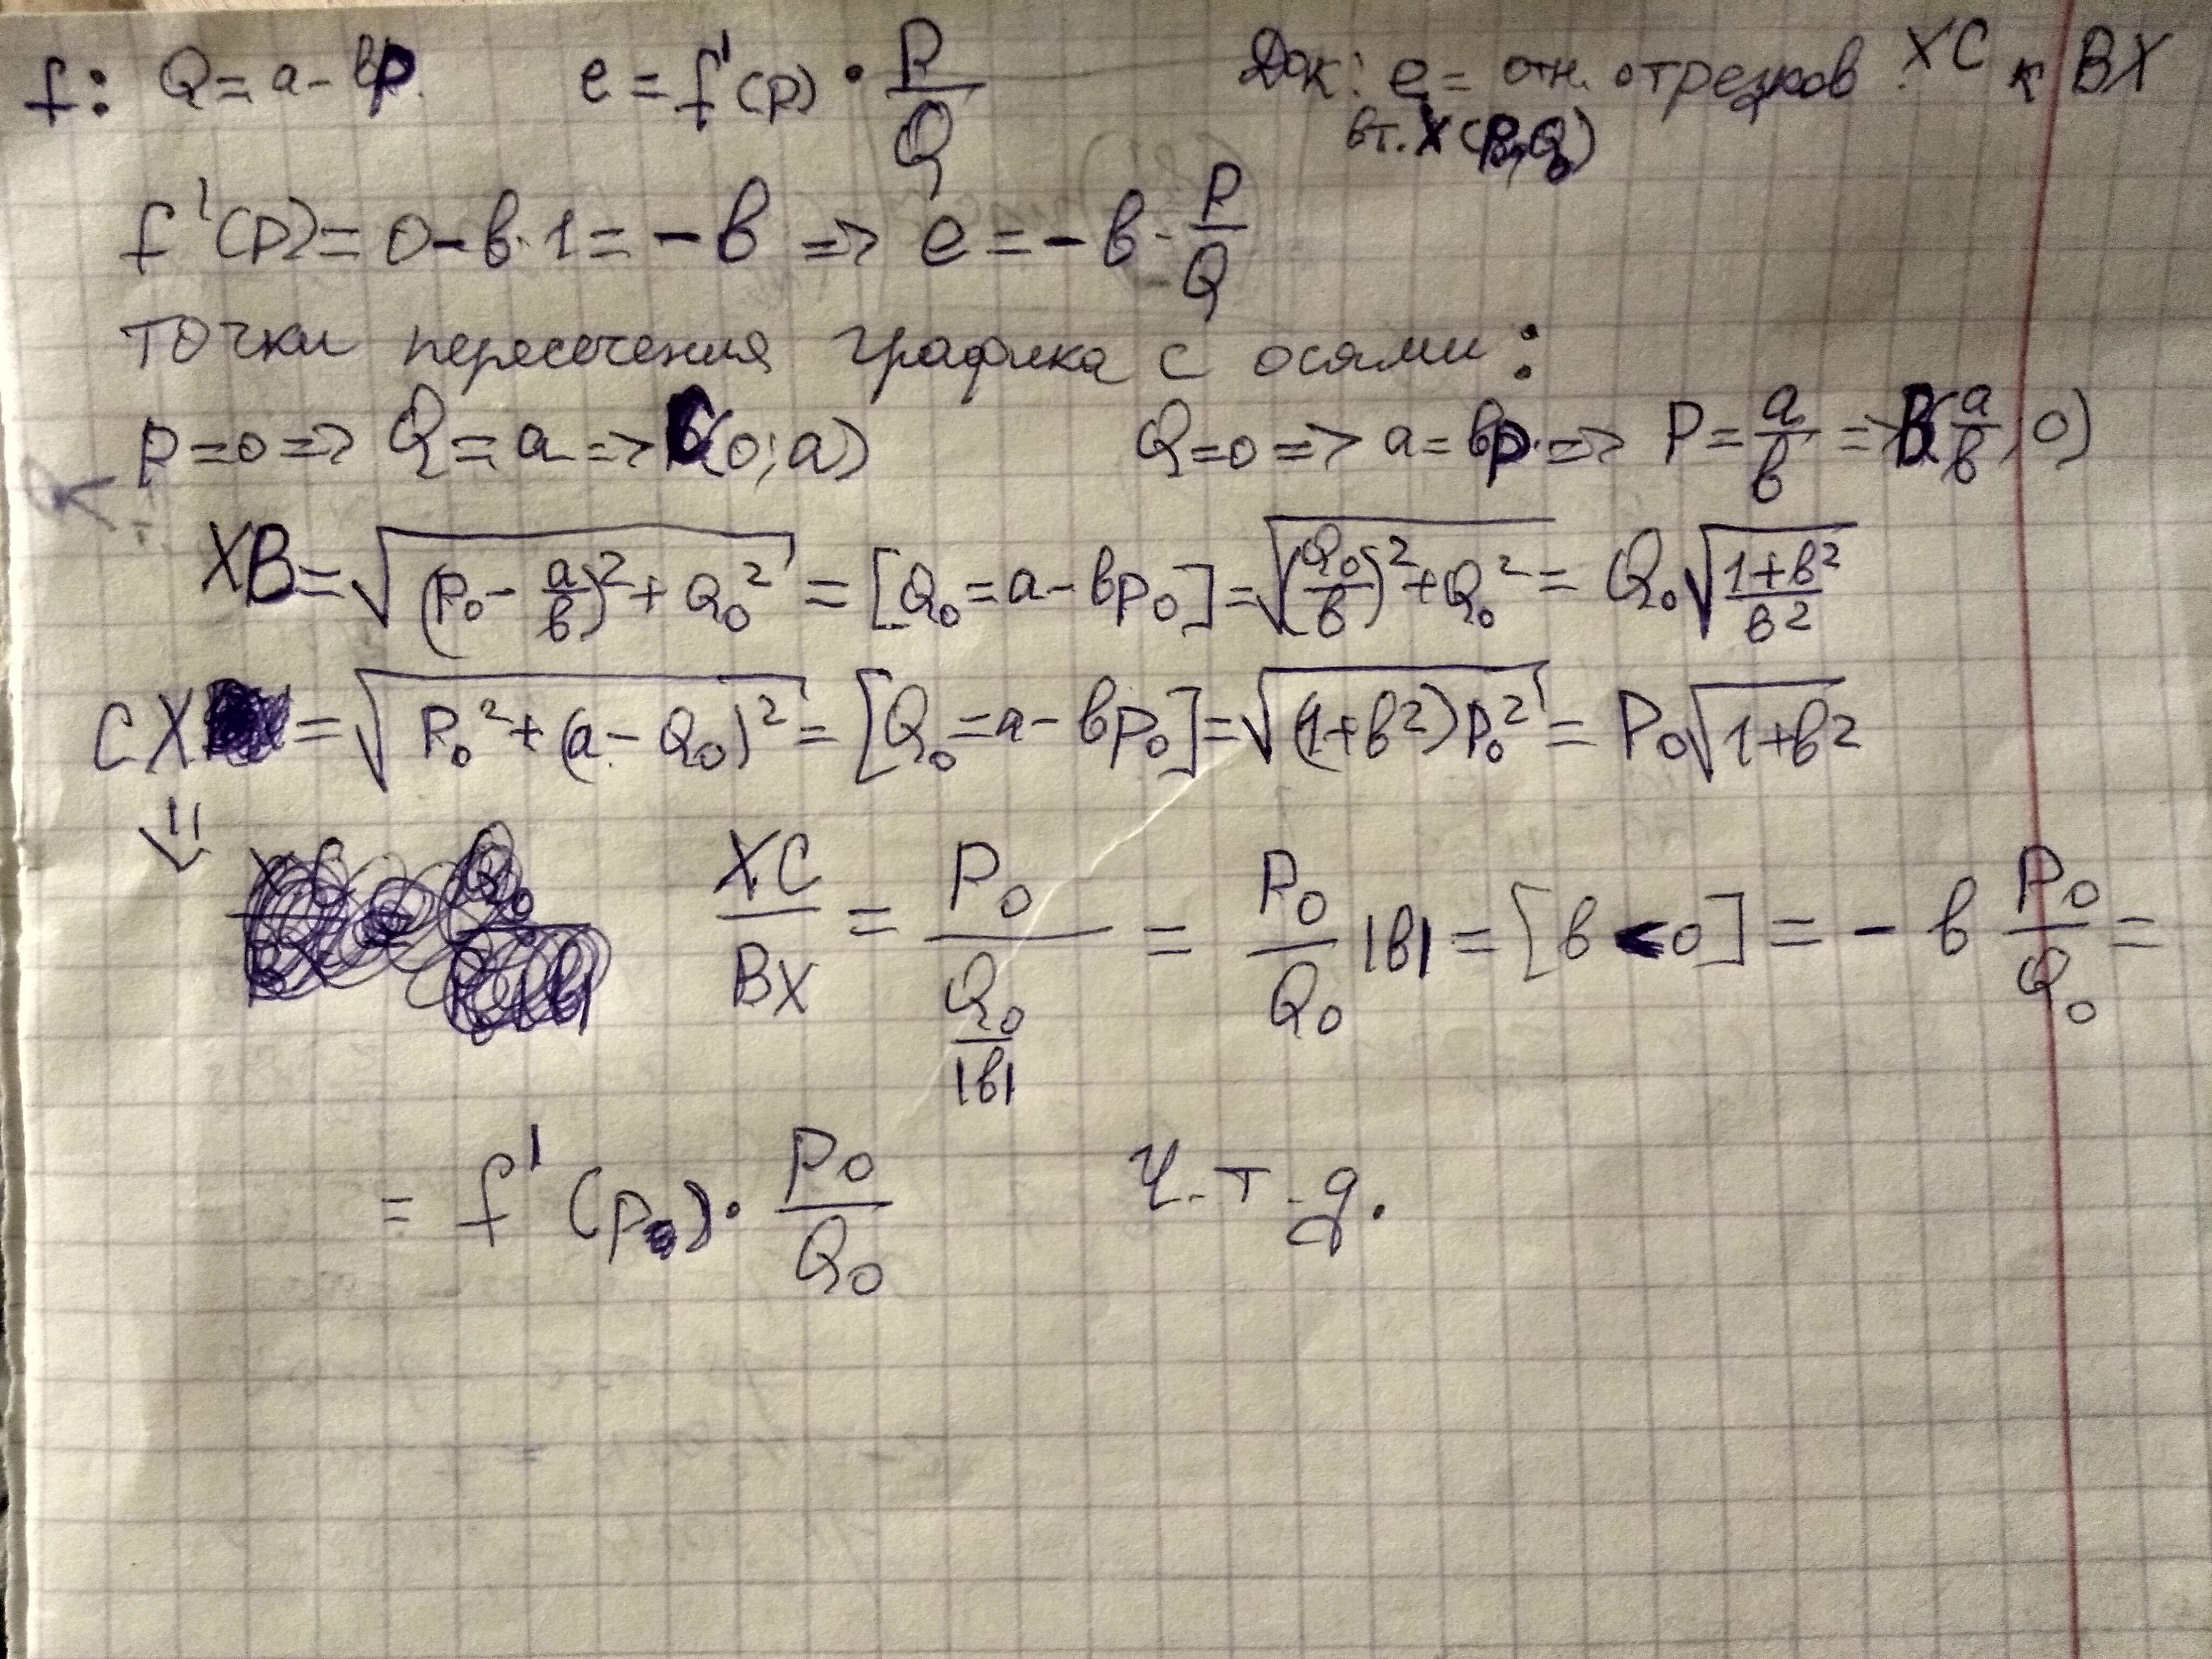 f: Q = a - вp. e = f'(p) · P/Q Док: e = отн. отрезков XC к BX
в т. X (P₀, Q₀)
f'(p) = 0 - в · 1 = - в => e = - в · P/Q
точки пересечения графика с осями:
p = 0 => Q = a => C(0; a) Q = 0 => a = вp => P = a/в => B(a/в; 0)
XB = √((P₀ - a/в)² + Q₀²) = [Q₀ = a - вp₀] = √((Q₀/в)² + Q₀²) = Q₀ √((1+в²)/в²)
CX = √(P₀² + (a - Q₀)²) = [Q₀ = a - вp₀] = √((1+в²)p₀²) = P₀√(1+в²)
=> XC/BX = P₀/(Q₀/|в|) = P₀/Q₀ |в| = [в < 0] = - в P₀/Q₀ =
= f'(p₀) · P₀/Q₀ Ч.т.д.